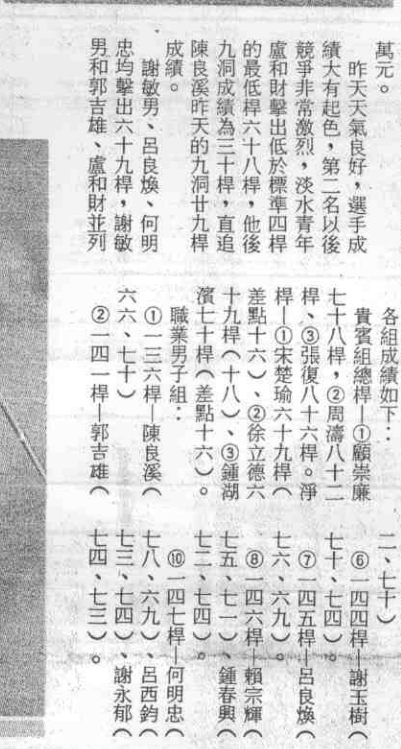 萬元。
昨天天氣良好，選手成
績大有起色，第二名以後
競爭非常激烈，淡水青年
盧和財擊出低於標準四桿
的最低桿六十八桿，他後
九洞成績為三十桿，直追
陳良溪昨天的九洞廿九桿
成績。
謝敏男、呂良煥、何明
忠均擊出六十九桿，謝敏
男和郭吉雄、盧和財並列
各組成績如下：
貴賓組總桿—①顧崇廉
七十八桿，②周濤八十二
桿、③張復八十六桿。淨
桿—①宋楚瑜六十九桿（
差點十六）、②徐立德六
十九桿（十八）、③鍾湖
濱七十桿（差點十六）。
職業男子組：
①一三六桿—陳良溪（
六六、七十）
②一四一桿—郭吉雄（
二、七十）
⑥一四四桿—謝玉樹（
七十、七四）。
⑦一四五桿—呂良煥（
七六、六九）。
⑧一四六桿—賴宗輝（
七五、七一）、鍾春興（
七二、七四）。
⑩一四七桿—何明忠（
七八、六九）、呂西鈞（
七三、七四）、謝永郁（
七四、七三）。